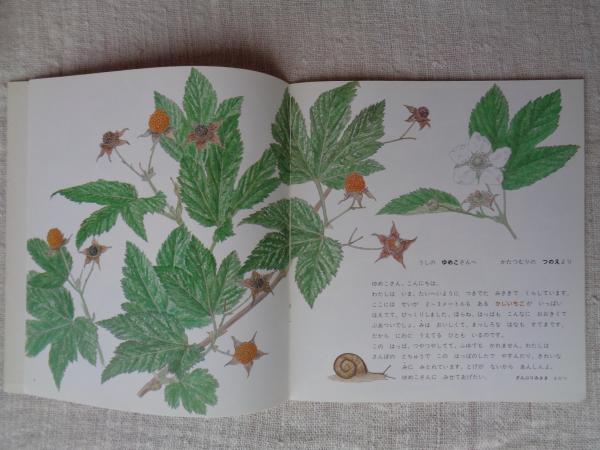 うしの ゆめこさんへ　　かたつむりの つのえより
ゆめこさん、こんにちは。
わたしは いま、たいへいように つきでた みさきで くらしています。
ここには せいが 2〜3メートルも ある かじいちごが いっぱい
はえてて、びっくりしました。ほらね、はっぱも こんなに おおきくて
ぶあついでしょ。みは おいしくて、まっしろな はなも すてきです。
だから にわに うえてる ひとも いるのです。
この はっぱ、つやつやしてて、ふゆでも かれません。わたしは
さんぽの とちゅうで この はっぱのしたで やすんだり、きれいな
みに みとれています。とげが ないから あんしんよ。
ゆめこさんに みせてあげたい。